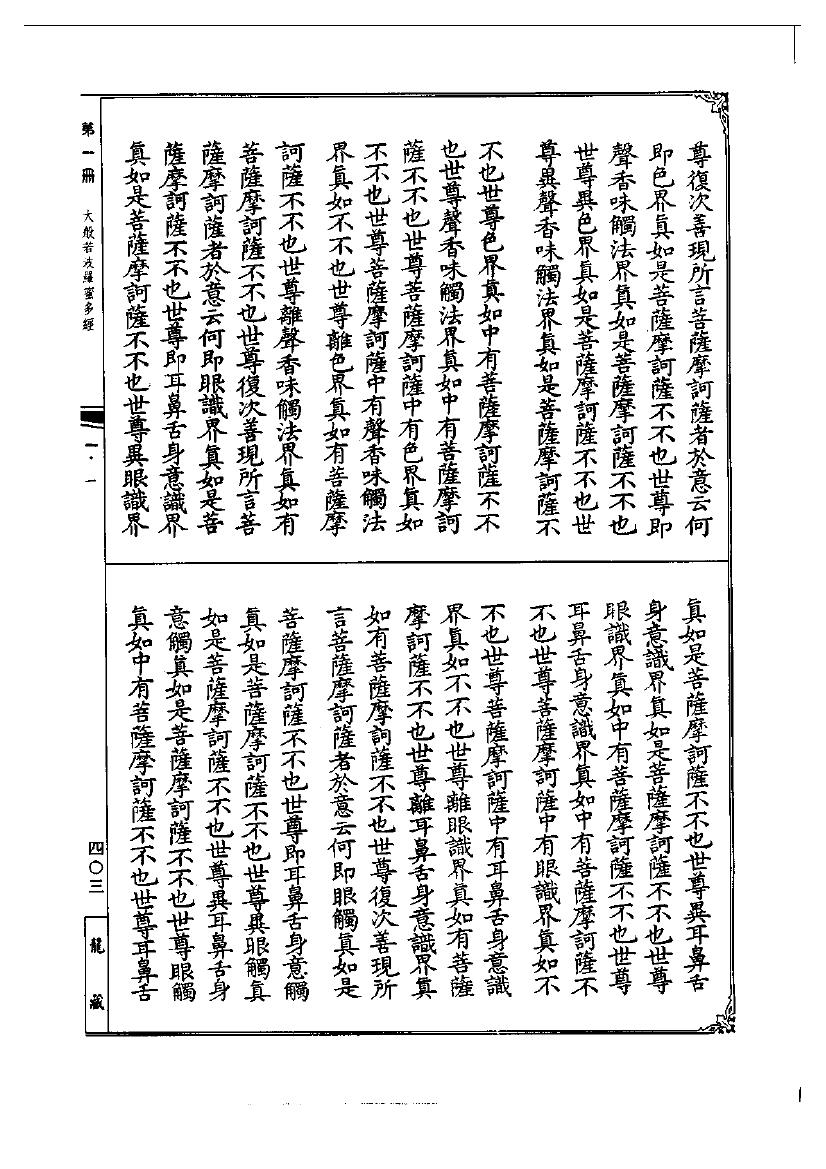 尊復次善現所言菩薩摩訶薩者於意云何
即色界真如是菩薩摩訶薩不不也世尊即
聲香味觸法界真如是菩薩摩訶薩不不也
世尊異色界真如是菩薩摩訶薩不不也世
尊異聲香味觸法界真如是菩薩摩訶薩不
不也世尊色界真如中有菩薩摩訶薩不不
也世尊聲香味觸法界真如中有菩薩摩訶
薩不不也世尊菩薩摩訶薩中有色界真如
不不也世尊菩薩摩訶薩中有聲香味觸法
界真如不不也世尊離色界真如有菩薩摩
訶薩不不也世尊離聲香味觸法界真如有
菩薩摩訶薩不不也世尊復次善現所言菩
薩摩訶薩者於意云何即眼識界真如是菩
薩摩訶薩不不也世尊即耳鼻舌身意識界
真如是菩薩摩訶薩不不也世尊異眼識界
真如是菩薩摩訶薩不不也世尊異耳鼻舌
身意識界真如是菩薩摩訶薩不不也世尊
眼識界真如中有菩薩摩訶薩不不也世尊
耳鼻舌身意識界真如中有菩薩摩訶薩不
不也世尊菩薩摩訶薩中有眼識界真如不
不也世尊菩薩摩訶薩中有耳鼻舌身意識
界真如不不也世尊離眼識界真如有菩薩
摩訶薩不不也世尊離耳鼻舌身意識界真
如有菩薩摩訶薩不不也世尊復次善現所
言菩薩摩訶薩者於意云何即眼觸真如是
菩薩摩訶薩不不也世尊即耳鼻舌身意觸
真如是菩薩摩訶薩不不也世尊異眼觸真
如是菩薩摩訶薩不不也世尊異耳鼻舌身
意觸真如是菩薩摩訶薩不不也世尊眼觸
真如中有菩薩摩訶薩不不也世尊耳鼻舌
第一冊 大般若波羅蜜多經
一·一
四〇三
龍藏